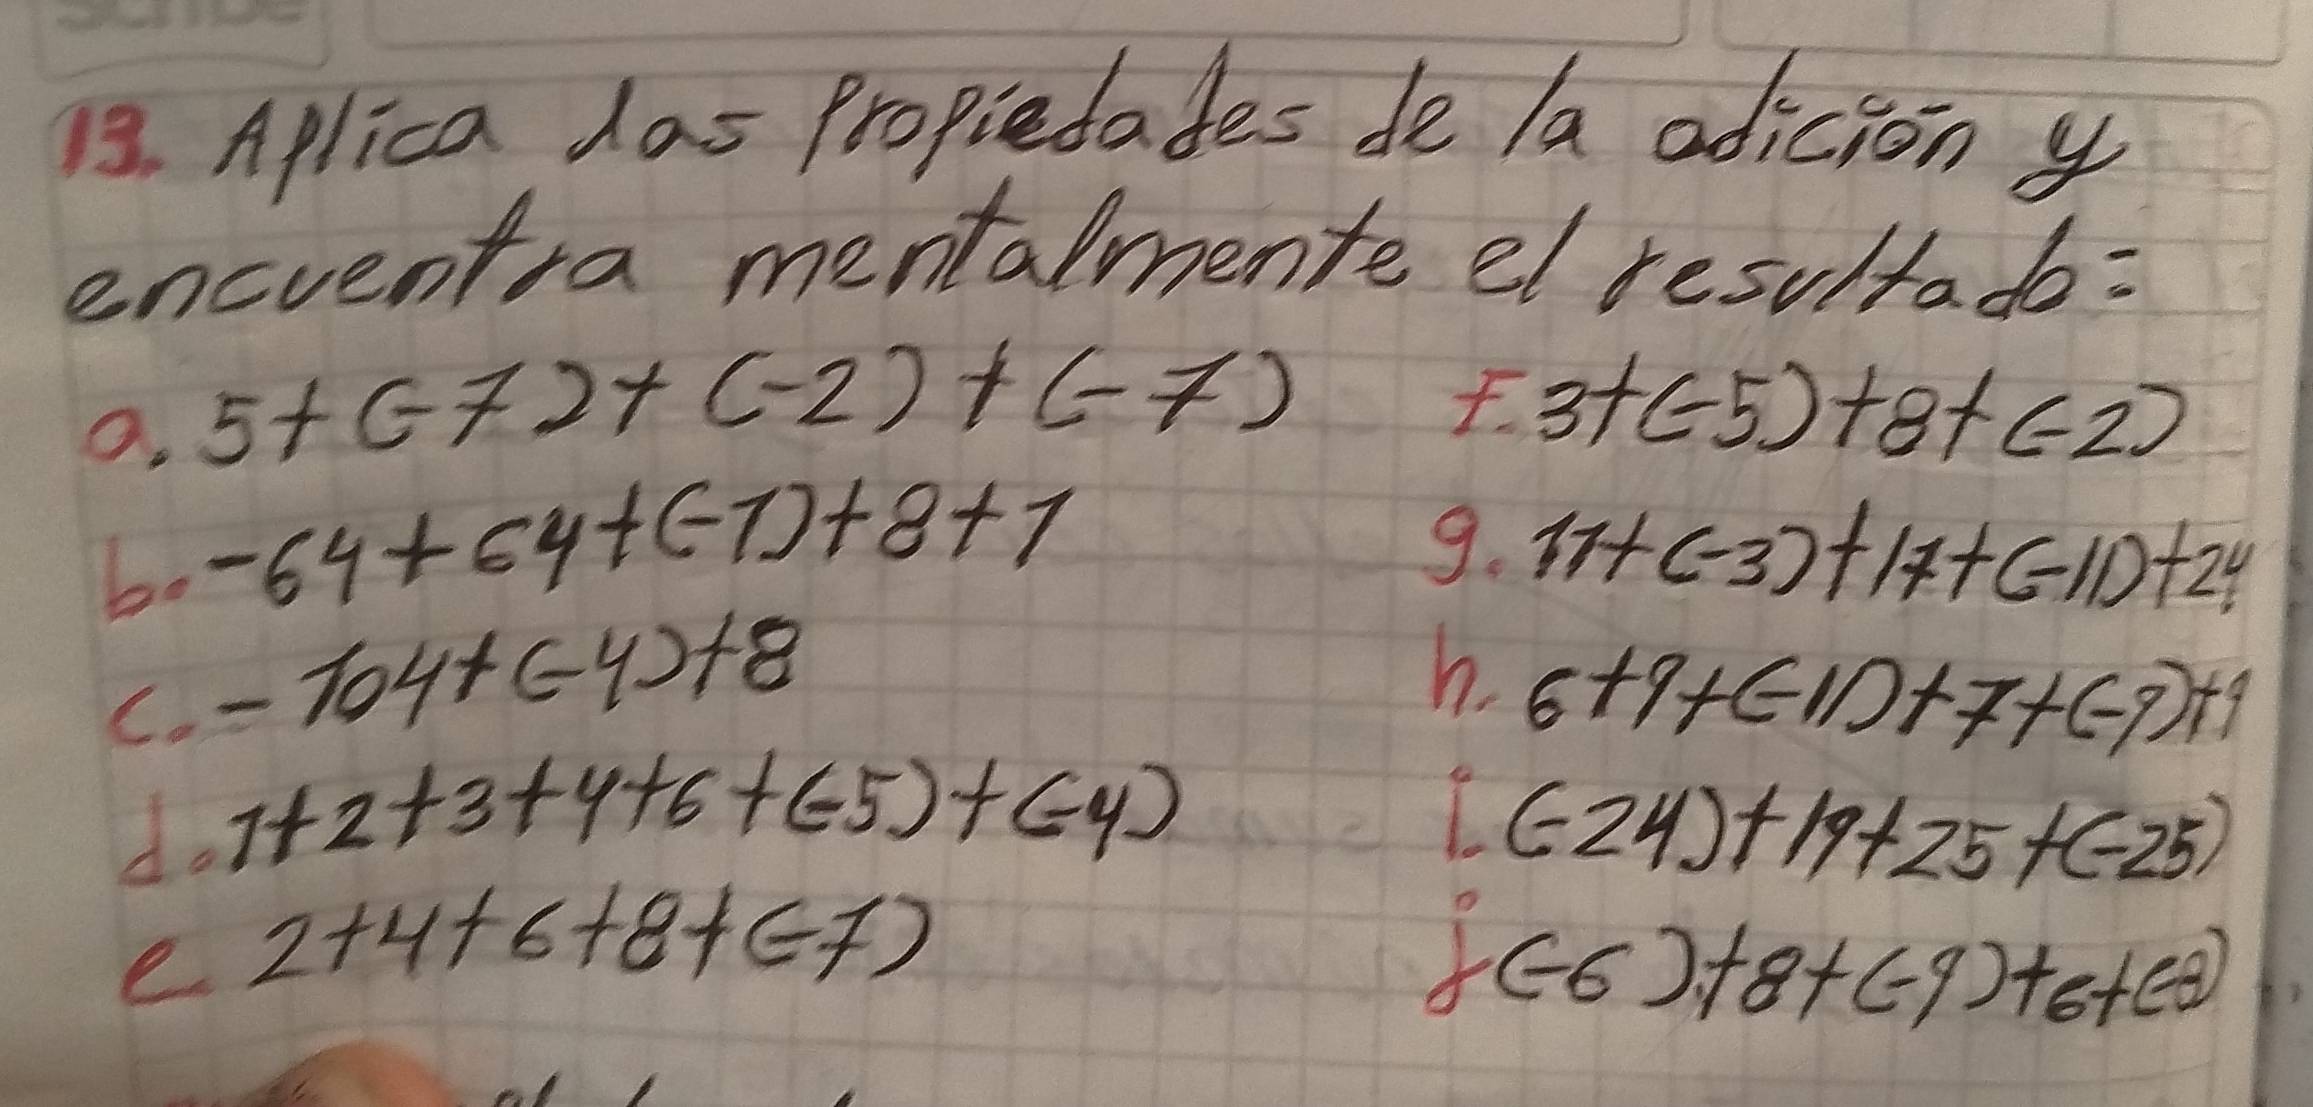 13. Aplica las propiedades de la adición y
encuentra mentalmente el resultado:
a. 5+(-7)+(-2)+(-7)
b. -64+64+(-1)+8+1
c. -104+(-4)+8
d. 1+2+3+4+6+(-5)+(-4)
e 2+4+6+8+(-7)
F. 3+(-5)+8+(-2)
g. 11+(-3)+17+(-11)+24
h. 6+9+(-11)+7+(-9)+9
i. (-24)+19+25+(-25)
j (-6)+8+(-9)+6+(-8)